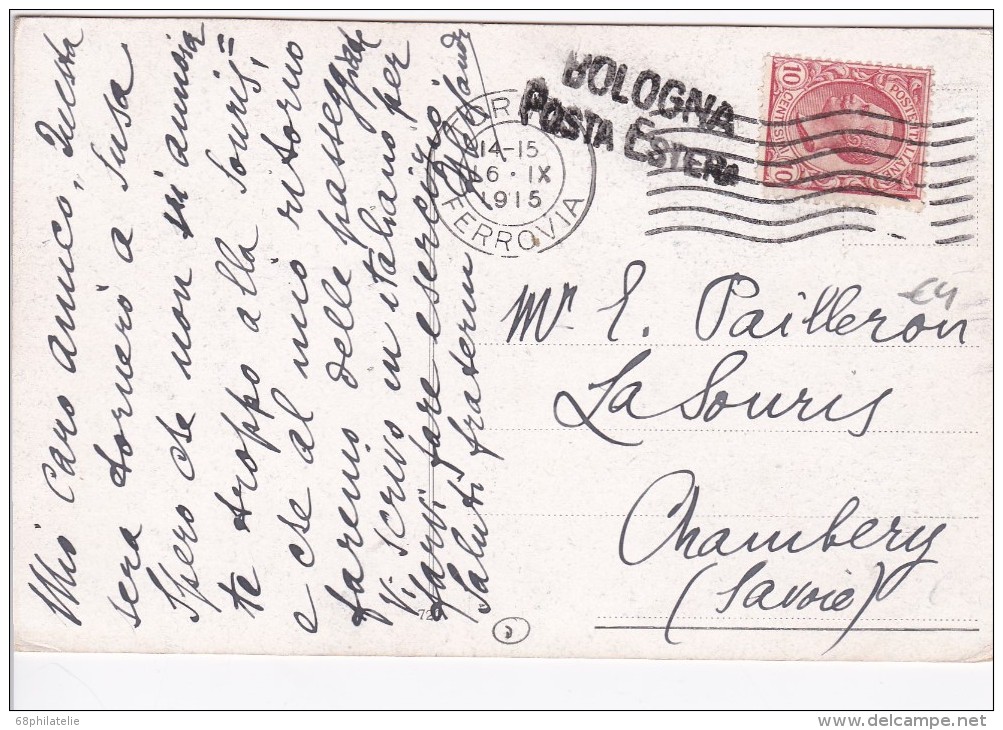 Mio caro amico, Questa
sera tornerò a Susa
Spero che non si annoia
te troppo alla Souris,
e che al mio ritorno
faremo delle passeggiate
Vi scrivo in italiano per
farvi fare esercizio
Saluti fraterni
BOLOGNA
POSTA ESTERA
14-15
6·IX
1915
FERROVIA
POSTE ITALIANE
CENTESIMI
10
10
Mr E. Pailleron
La Souris
Chambery
(Savoie)
72
68philatelie
www.delcampe.net